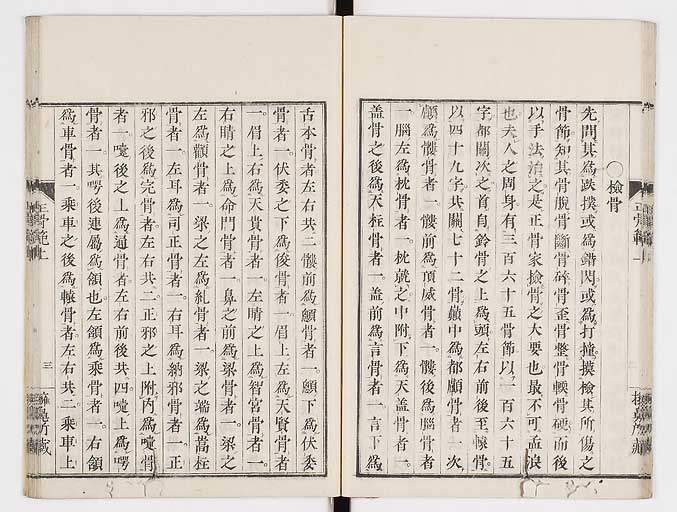 〇檢骨
先問其爲跌撲或爲錯閃或爲打撞摸檢其所傷之
骨節知其骨脫骨斷骨碎骨歪骨整骨輭骨硬而後
以手法治之是正骨家檢骨之大要也最不可孟浪
也夫人之周身有三百六十五骨節以一百六十五
字都關次之首自鈴骨之上爲頭左右前後至骨
以四十九字共關七十二骨巓中爲都顖骨者一次
顱爲髏骨者一髏前爲頂威骨者一髏後爲腦骨者
一腦左爲枕骨者一枕就之中附下爲天蓋骨者一
蓋骨之後爲天柱骨者一蓋前爲言骨者一言下爲
舌本骨者左右共二髏前爲顖骨者一顖下爲伏委
骨者一伏委之下爲俊骨者一眉上左爲天賢骨者
一眉上右爲天貴骨者一左睛之上爲智宮骨者一
右睛之上爲命門骨者一鼻之前爲梁骨者一梁之
左爲顴骨者一梁之左爲糺骨者一梁之端爲嵩柱
骨者一左耳爲司正骨者一右耳爲納邪骨者一正
邪之後爲完骨者左右共二正邪之上附內爲嚏骨
者一嚏後之上爲通骨者左右前後共四嚏上爲㗁
骨者一其㗁後連屬爲頷也左頷爲乘骨者一右頷
爲車骨者一乘車之後爲轅骨者左右共二乘車上
正骨範上
三